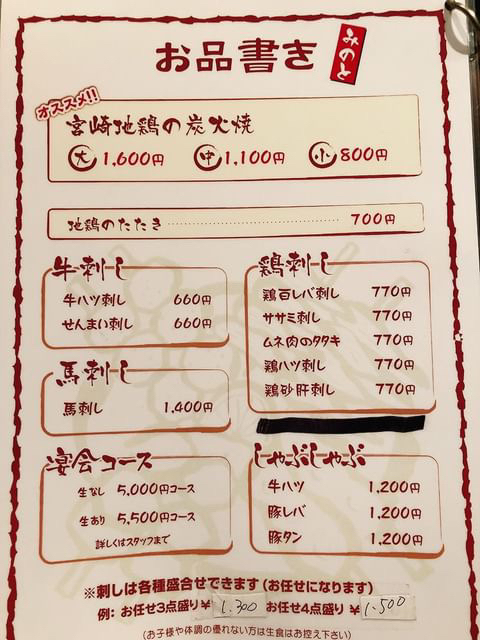 お品書き
みのと
オススメ!!
宮崎地鶏の炭火焼
大 1,600円 中 1,100円 小 800円
地鶏のたたき 700円
牛刺し
牛ハツ刺し 660円
せんまい刺し 660円
馬刺し
馬刺し 1,400円
鶏刺し
鶏白レバ刺し 770円
ササミ刺し 770円
ムネ肉のタタキ 770円
鶏ハツ刺し 770円
鶏砂肝刺し 770円
宴会コース
生なし 5,000円コース
生あり 5,500円コース
詳しくはスタッフまで
しゃぶしゃぶ
牛ハツ 1,200円
豚レバ 1,200円
豚タン 1,200円
※刺しは各種盛合せできます(お任せになります)
例: お任せ3点盛り¥ 1.300 お任せ4点盛り¥ 1.500
(お子様や体調の優れない方は生食はお控え下さい)